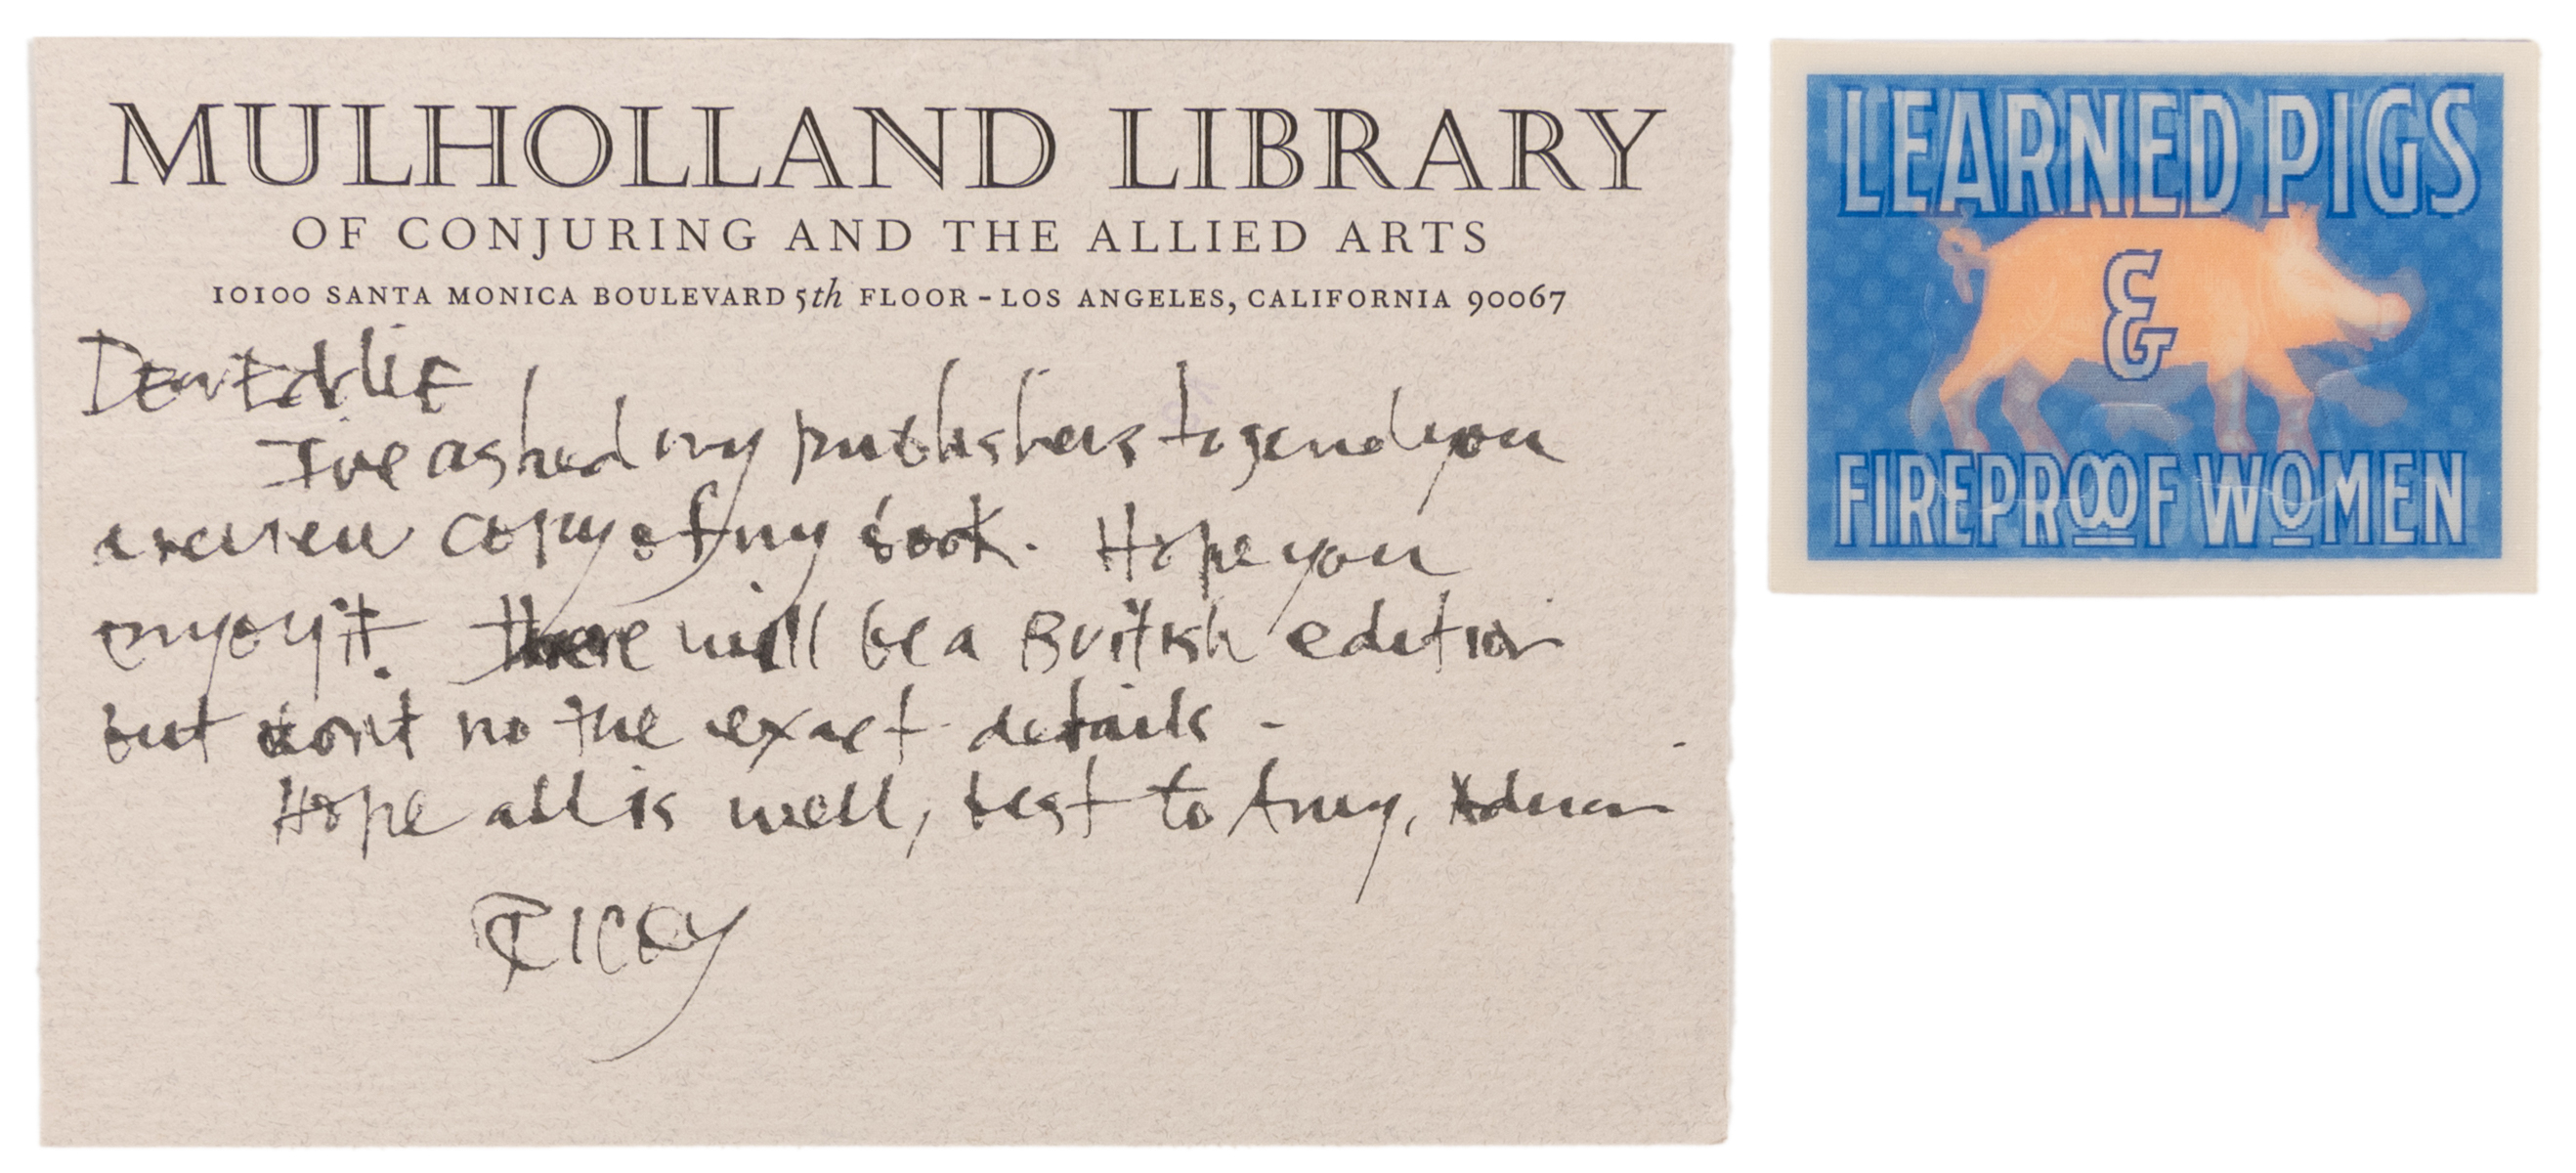 MULHOLLAND LIBRARY
OF CONJURING AND THE ALLIED ARTS
10100 SANTA MONICA BOULEVARD 5th FLOOR - LOS ANGELES, CALIFORNIA 90067
Dear Eddie
I've asked my publishers to send you
a review copy of my book. Hope you
enjoy it. There will be a British edition
but don't no the exact details -
Hope all is well, best to Amy,
Ricky
LEARNED PIGS
&
FIREPROOF WOMEN